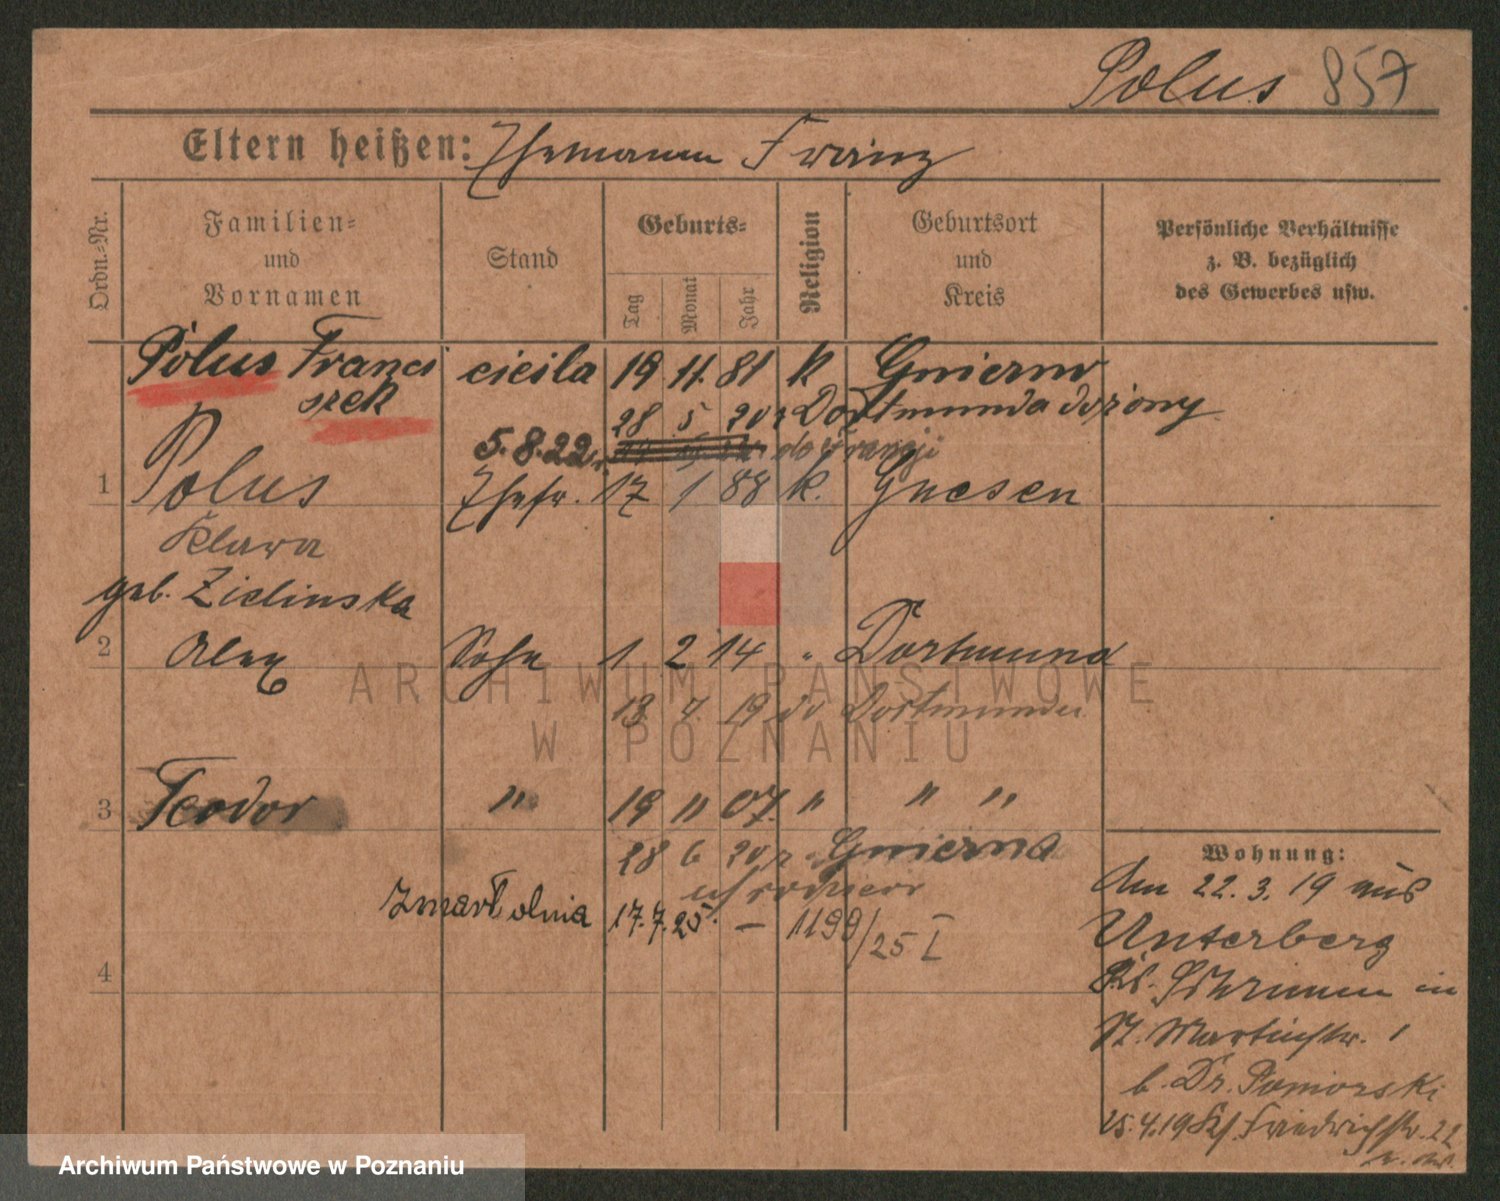 Polus 857
Eltern heißen: Ehemann Franz
Ordn.-Nr.
Familien-
und
Vornamen
Stand
Geburts-
Tag
Monat
Jahr
Religion
Geburtsort
und
Kreis
Persönliche Verhältnisse
z. B. bezüglich
des Gewerbes usw.
Polus Franci cieśla 19 11. 81 k
szek 28 5 20 z Dortmunda do żony
5.8.22 do Francji
1 Polus Ehefr. 17 1 88 k. Gnesen
Klara
geb. Zielinska
2 Alex Sohn 1 2 14 " Dortmund
18 7. 19 do Dortmundu
3 Teodor " 19 11 07. " " "
28 6 20 z
Zmarł dnia 17.7.25. — 1199/25 I
4
Wohnung:
Am 22.3.19 aus
Unterberg
Krs. Schrimm in
St. Martinstr. 1
b. Dr. Pomorski
25.4.19 Friedrichstr. 22
ARCHIWUM PAŃSTWOWE
W POZNANIU
Archiwum Państwowe w Poznaniu